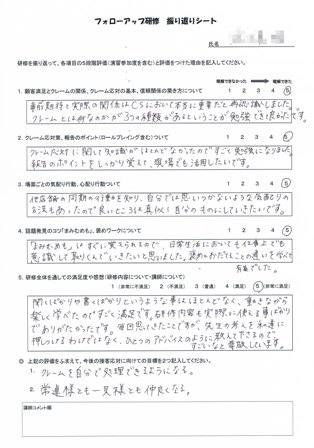 フォローアップ研修　振り返りシート
氏名
研修を振り返って、各項目の5段階評価（演習参加度を含む）と評価をつけた理由を記入してください。
理解できなかった　理解できた
1．顧客満足とクレームの関係、クレーム応対の基本、信頼関係の築き方について　1　2　3　4　5
事前期待と実際の関係はCSにおいて本当に重要だと再認識しました。
クレームとは何なのかが3つの種類があるということが勉強でき良かったです。
2．クレーム応対策、報告のポイント（ロールプレイング含む）ついて　1　2　3　4　5
クレーム応対に関して知識がほとんどなかったのですごく勉強になりました。
報告のポイントをしっかり覚えて、現場でも活用したいです。
3．場面ごとの気配り行動、心配り行動ついて　1　2　3　4　5
他店舗の同期の行動を知り、自分では思いつかないような気配りの
方法もあったので良いところは真似し自分のものにしていきたいです。
4．話題発見のコツ「まみむめも」、褒めワークについて　1　2　3　4　5
「まみむめも」はすぐに覚えられるので、日常生活においても仕事上でも
意識して取りくんでいきたいと思いました。褒めとおだてることの違いを学べて
有意でした。
5．研修全体を通しての満足度や感想（研修内容について・講師について）
1（非常に不満足）　2（不満足）　3（普通）　4（満足）　5（非常に満足）
聞くばかりや書くばかりというような事はほとんどなく、動きながら
楽しく学べたのですごく満足です。研修内容も実際に使える事ばかり
でありがたかったです。毎回思ってきたことですが、先生の考えを私達に
押しつけるわけではなく、ひとつのアドバイスのように教えて下さるので
すごいなと尊敬しています。
◎　上記の評価をふまえて、今後の接客応対に向けての目標を2つ記入してください。
1．クレームを自分で処理できるようになる。
2．常連様とも一見様とも仲良くなる。
講師コメント欄